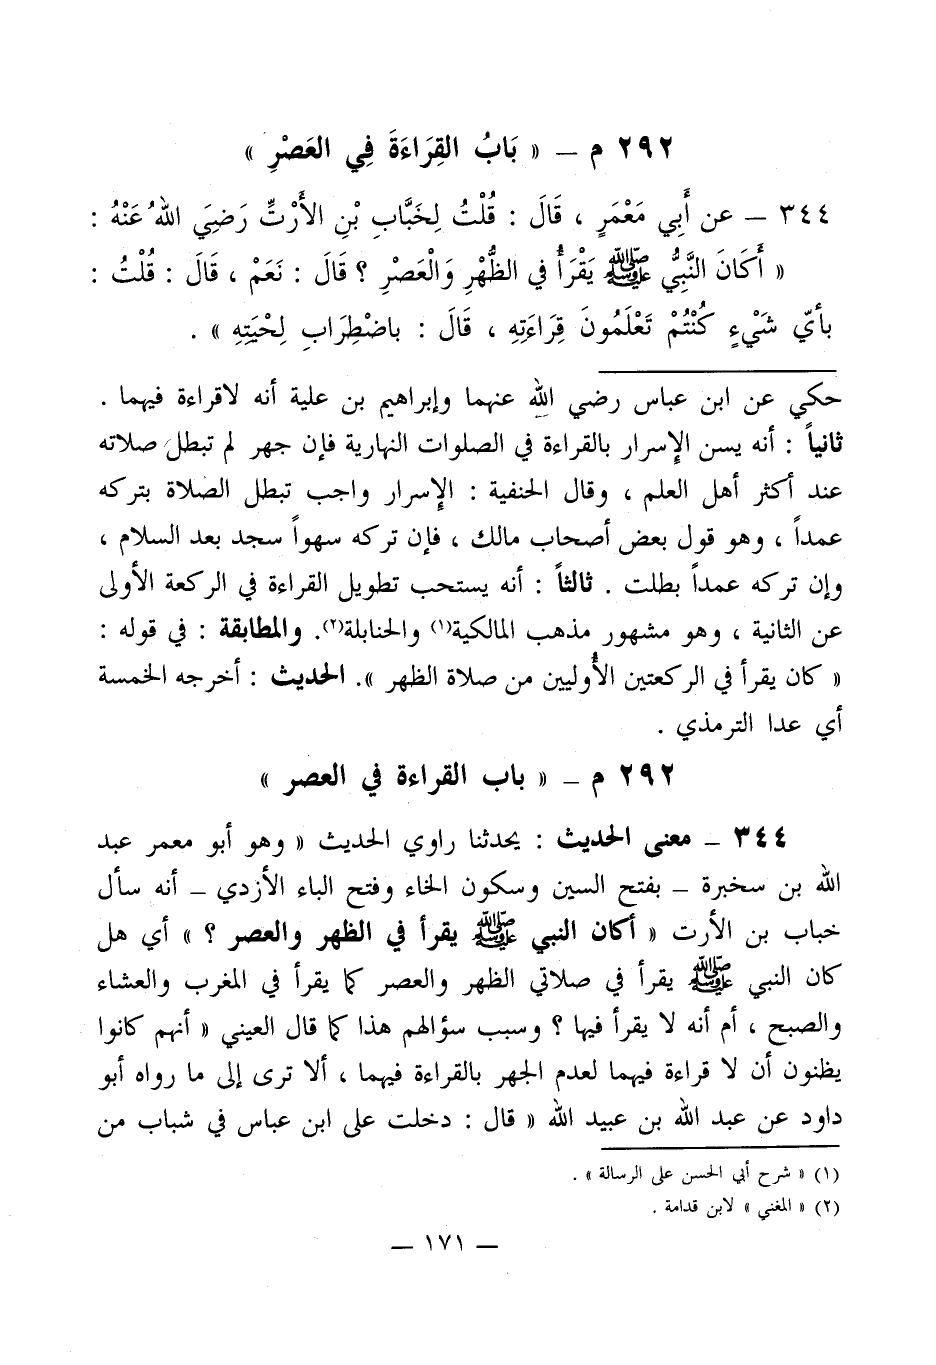 ٢٩٢ م – « بَابُ القِرَاءَةَ فِي العَصْرِ »
٣٤٤ – عن أَبِي مَعْمَرٍ ، قَالَ : قُلْتُ لِخَبَّابِ بْنِ الأَرْتِّ رَضِيَ اللهُ عَنْهُ :
« أَكَانَ النَّبِيُّ ﷺ يَقْرَأُ في الظُّهْرِ وَالْعَصْرِ ؟ قَالَ : نَعَمْ ، قَالَ : قُلْتُ :
بأَيِّ شَيْءٍ كُنْتُمْ تَعْلَمُونَ قِرَاءَتِهِ ، قَالَ : باضْطِرَابِ لِحْيَتِهِ » .
حكي عن ابن عباس رضي الله عنهما وإبراهيم بن علية أنه لاقراءة فيهما .
ثانياً : أنه يسن الإسرار بالقراءة في الصلوات النهارية فإن جهر لم تبطل صلاته
عند أكثر أهل العلم ، وقال الحنفية : الإسرار واجب تبطل الصلاة بتركه
عمداً ، وهو قول بعض أصحاب مالك ، فإن تركه سهواً سجد بعد السلام ،
وإن تركه عمداً بطلت . ثالثاً : أنه يستحب تطويل القراءة في الركعة الأولى
عن الثانية ، وهو مشهور مذهب المالكية(١) والحنابلة(٢). والمطابقة : في قوله :
« كان يقرأ في الركعتين الأُوليين من صلاة الظهر ». الحديث : أخرجه الخمسة
أي عدا الترمذي .
٢٩٢ م – « باب القراءة في العصر »
٣٤٤ – معنى الحديث : يحدثنا راوي الحديث « وهو أبو معمر عبد
الله بن سخبرة – بفتح السين وسكون الخاء وفتح الباء الأزدي – أنه سأل
خباب بن الأرت « أكان النبي ﷺ يقرأ في الظهر والعصر ؟ » أي هل
كان النبي ﷺ يقرأ في صلاتي الظهر والعصر كما يقرأ في المغرب والعشاء
والصبح ، أم أنه لا يقرأ فيها ؟ وسبب سؤالهم هذا كما قال العيني « أنهم كانوا
يظنون أن لا قراءة فيهما لعدم الجهر بالقراءة فيهما ، ألا ترى إلى ما رواه أبو
داود عن عبد الله بن عبيد الله « قال : دخلت على ابن عباس في شباب من
(١) « شرح أبي الحسن على الرسالة » .
(٢) « المغني » لابن قدامة .
– ١٧١ –